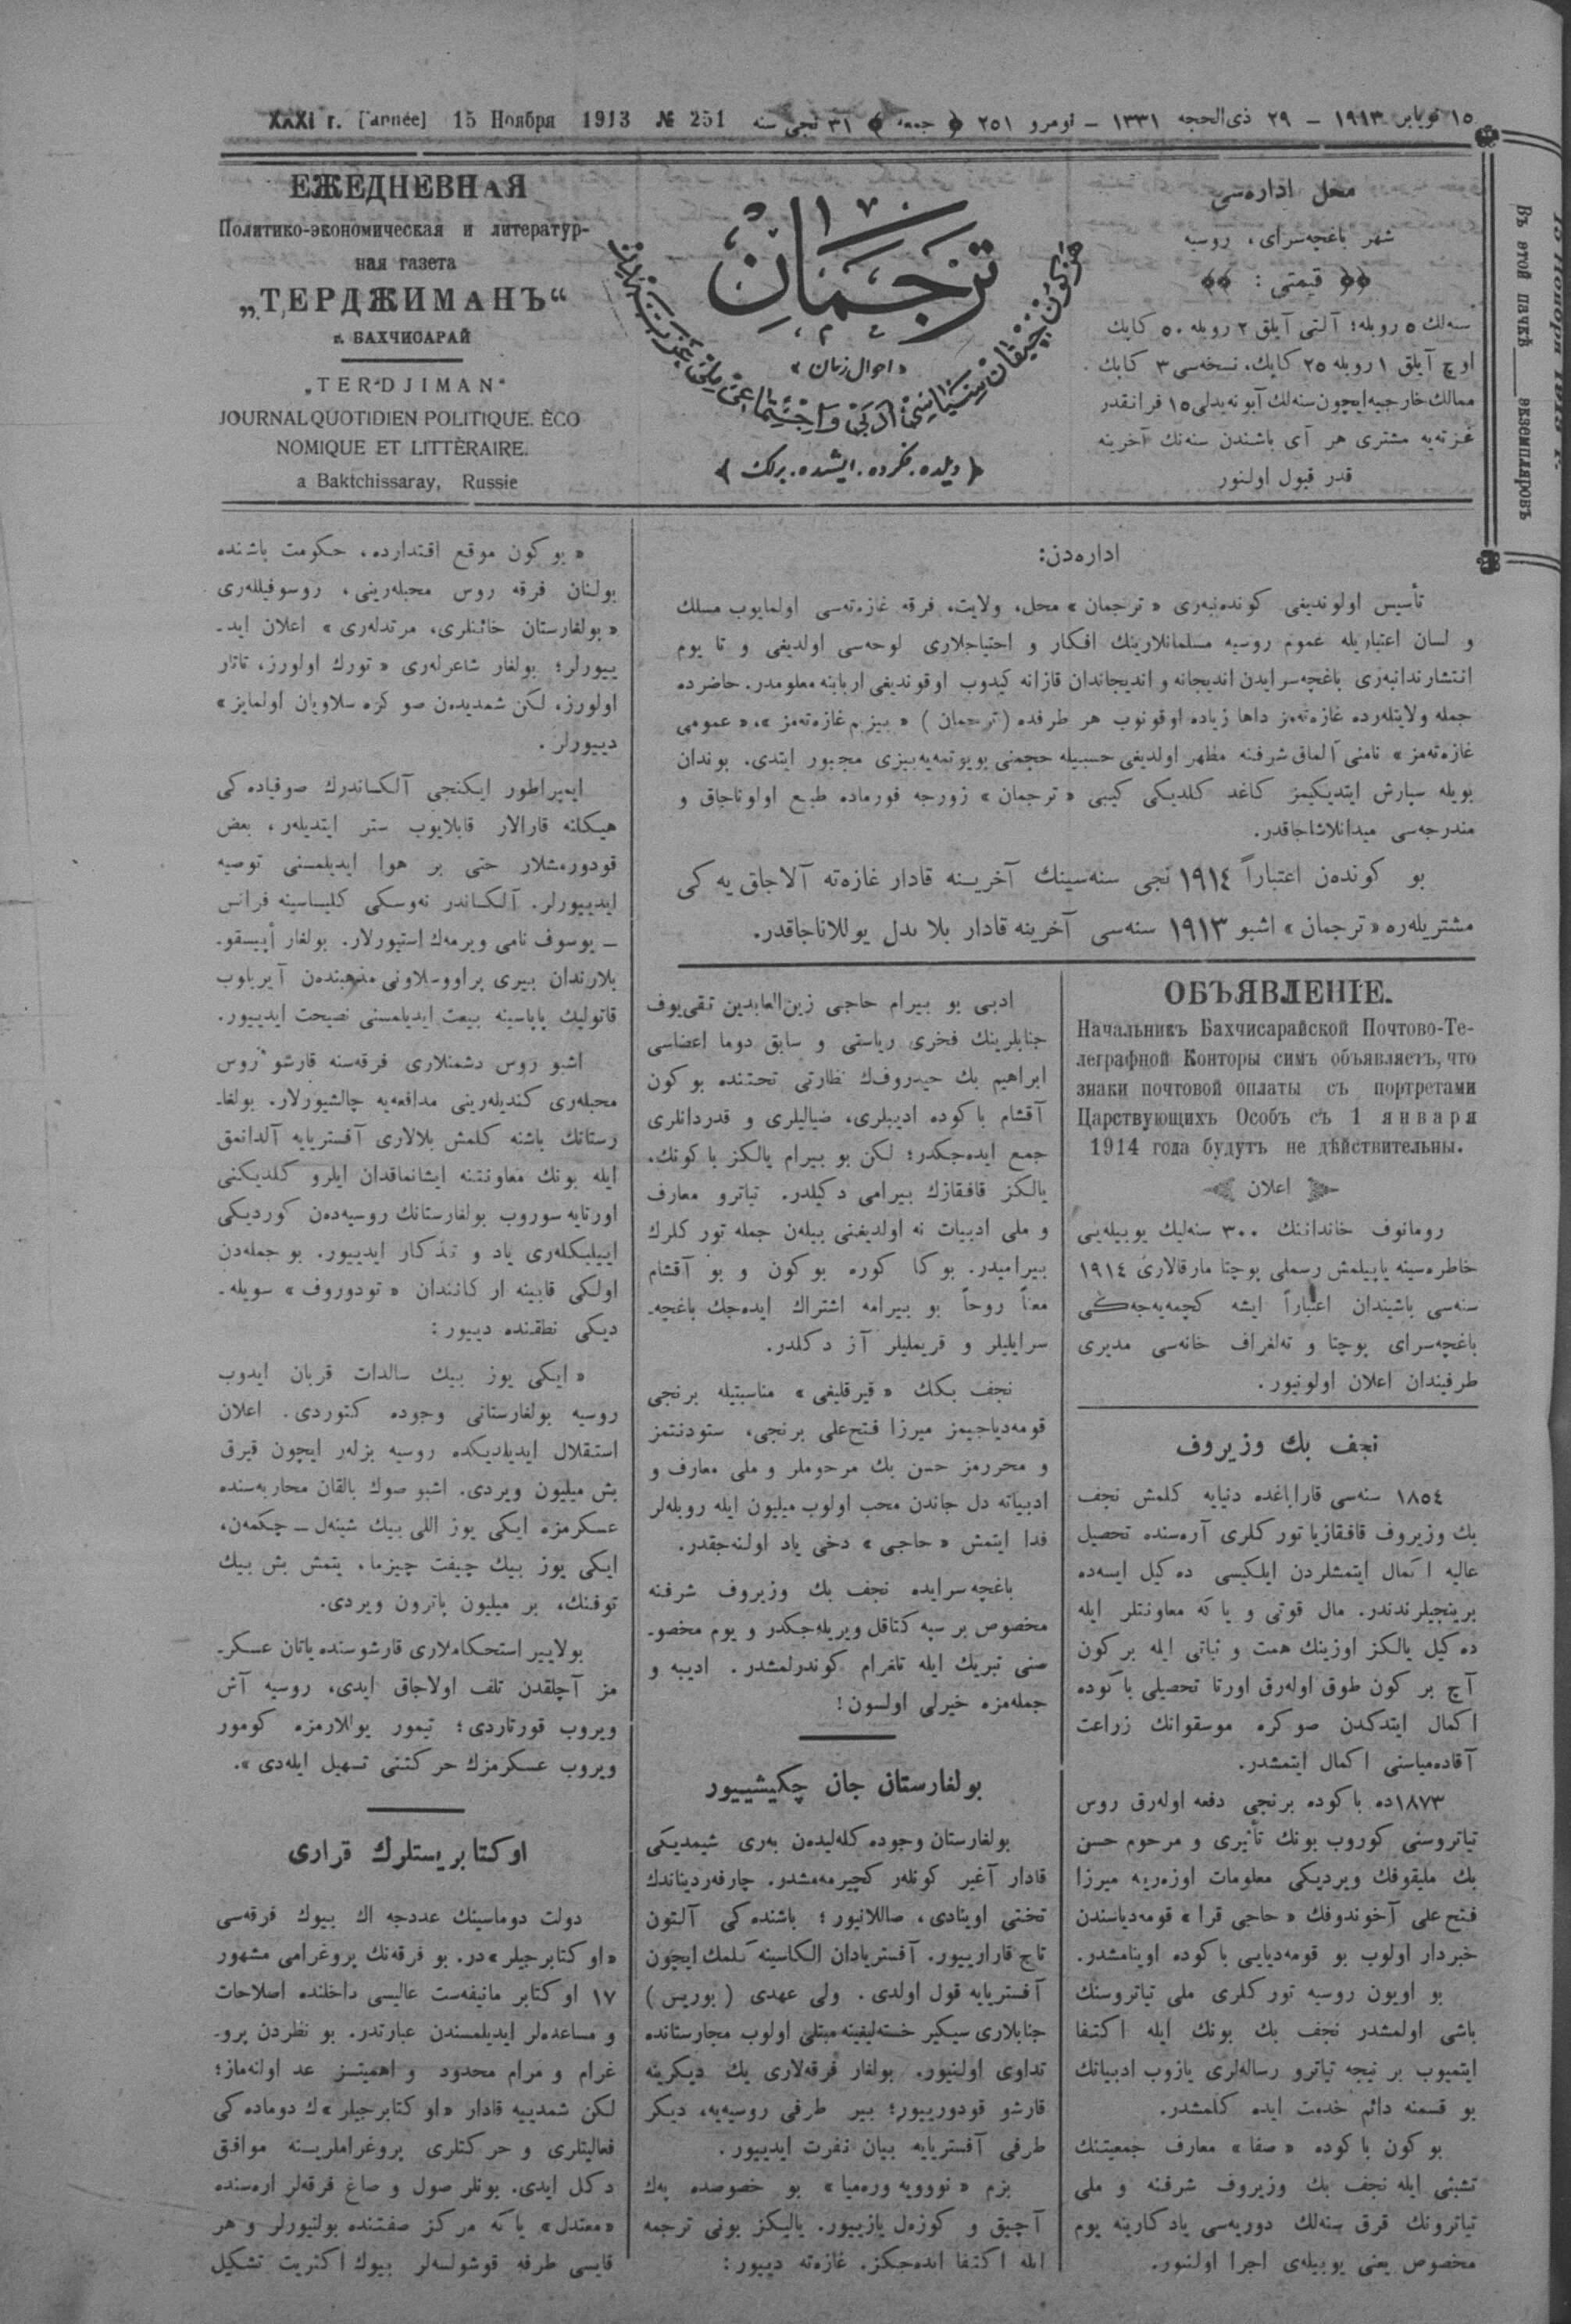 XXXI г. [année] 15 Ноября 1913 № 251
١٥ نویابر ١٩١٣ – ٢٩ ذی‌الحجه ١٣٣١ – نومرو ٢٥١ ﴿ جمعه ﴾ ٣١ نجی سنه
ЕЖЕДНЕВНАЯ
Политико-экономическая и литератур-
ная газета
„ТЕРДЖИМАНЪ“
г. БАХЧИСАРАЙ
„TERDJIMAN“
JOURNAL QUOTIDIEN POLITIQUE. ÈCO
NOMIQUE ET LITTÈRAIRE.
a Baktchissaray, Russie
ترجمان
« احوال زمان »
﴿ دیلده . فکرده . ایشده . برلك ﴾
محل اداره‌سی
شهر باغچه‌سرای، روسیه
قیمتی :
سنه‌لك ٥ روبله؛ آلتی آیلق ٢ روبله ٥٠ کاپك
اوچ آیلق ١ روبله ٢٥ کاپك، نسخه‌سی ٣ کاپك .
ممالك خارجیه ایچون سنه‌لك آبونه‌بدلی ١٥ فرانقدر
غزته‌یه مشتری هر آی باشندن سنه‌نك آخرینه
قدر قبول اولنور
Въ этой пачкѣ ____ экземпляровъ
اداره‌دن:
تأسیس اولوندیغی کونده‌نبه‌ری « ترجمان » محل، ولایت، فرقه غازه‌ته‌سی اولمایوب مسلك
و لسان اعتباریله عموم روسیه مسلمانلارینك افكار و احتیاجلاری لوحه‌سی اولدیغی و تا یوم
انتشارندانبه‌ری باغچه‌سرایدن اندیجانه و اندیجاندان قازانه کیدوب اوقوندیغی اربابنه معلومدر. حاضرده
جمله ولایتله‌رده غازه‌ته‌مز داها زیاده اوقونوب هر طرفده (ترجمان) « بیزیم غازه‌ته‌مز »، « عمومی
غازه‌ته‌مز » نامنی آلماق شرفنه مظهر اولدیغی حسبیله حجمنی بویوتمه‌یه بیزی مجبور ایتدی. بوندان
بویله سپارش ایتدیکیمز کاغد کلدیکی کیبی « ترجمان » زورجه فورماده طبع اولوناجاق و
مندرجه‌سی میدانلاشاجاقدر.
بو کونده‌ن اعتباراً ١٩١٤ نجی سنه‌سینك آخرینه قادار غازه‌ته آلاجاق یه کی
مشتریله‌ره « ترجمان » اشبو ١٩١٣ سنه‌سی آخرینه قادار بلا بدل یوللاناجاقدر.
ОБЪЯВЛЕНІЕ.
Начальникъ Бахчисарайской Почтово-Те-
леграфной Конторы симъ объявляетъ, что
знаки почтовой оплаты съ портретами
Царствующихъ Особъ съ 1 января
1914 года будутъ не дѣйствительны.
اعلان
رومانوف خانداننك ٣٠٠ سنه‌لیك یوبیله‌یی
خاطره‌سینه یاپیلمش رسملی پوچتا مارقالاری ١٩١٤
سنه‌سی باشیندان اعتباراً ایشه کچمه‌یه‌جه‌کی
باغچه‌سرای پوچتا و ته‌لغراف خانه‌سی مدیری
طرفیندان اعلان اولونیور.
نجف بك وزیروف
١٨٥٤ سنه‌سی قاراباغده دنیایه کلمش نجف
بك وزیروف قافقازیا تورکلری آره‌سنده تحصیل
عالیه اکمال ایتمشلردن ایلکیسی ده‌کیل ایسه‌ده
برینجیلرندندر. مال قوتی و یا که معاونتلر ایله
ده‌کیل یالکز اوزینك همت و ثباتی ایله بر کون
آچ بر کون طوق اوله‌رق اورتا تحصیلی باکوده
اکمال ایتدکدن صوکره موسقوانك زراعت
آقاده‌میاسنی اکمال ایتمشدر.
١٨٧٣ده باکوده برنجی دفعه اوله‌رق روس
تیاتروسنی کوروب بونك تأثیری و مرحوم حسن
بك ملیقوفك ویردیکی معلومات اوزه‌ریه میرزا
فتح علی آخوندوفك « حاجی قرا » قومه‌دیاسندن
خبردار اولوب بو قومه‌دیایی باکوده اوینامشدر.
بو اویون روسیه تورکلری ملی تیاتروسنك
باشی اولمشدر نجف بك بونك ایله اکتفا
ایتمیوب بر نیچه تیاترو رساله‌لری یازوب ادبیاتك
بو قسمنه دائم خدمت ایده کلمشدر.
بو کون باکوده « صفا » معارف جمعیتنك
تشبثی ایله نجف بك وزیروف شرفنه و ملی
تیاترونك قرق سنه‌لك دوریه‌سی یادکارینه یوم
مخصوص یعنی یوبیله‌ی اجرا اولنور.
ادبی بو بیرام حاجی زین‌العابدین تقی‌یوف
جنابلرینك فخری ریاستی و سابق دوما اعضاسی
ابراهیم بك حیدروفك نظارتی تحتنده بو کون
آقشام باکوده ادیبلری، ضیالیلری و قدردانلری
جمع ایده‌جکدر؛ لکن بو بیرام یالکز باکونك،
یالکز قافقازك بیرامی دکیلدر. تیاترو معارف
و ملی ادبیات نه اولدیغنی بیله‌ن جمله تورکلرك
بیرامیدر. بوکا کوره بوکون و بو آقشام
معناً روحاً بو بیرامه اشتراك ایده‌جك باغچه‌ـ
سرایلیلر و قریملیلر آز دکلدر.
نجف بکك « قیرقلیغی » مناسبتیله برنجی
قومه‌دیاجیمز میرزا فتح‌علی برنجی، ستودنتمز
و محررمز حسن بك مرحوملر و ملی معارف و
ادبیاته دل جاندن محب اولوب میلیون ایله روبله‌لر
فدا ایتمش « حاجی » دخی یاد اولنه‌جقدر.
باغچه‌سرایده نجف بك وزیروف شرفنه
مخصوص بر سپه کتاقل ویریله‌جکدر و یوم مخصوـ
صنی تبریك ایله تلغرام کوندرلمشدر. ادیبه و
جمله‌مزه خیرلی اولسون!
بولغارستان جان چکیشییور
بولغارستان وجوده کله‌لیده‌ن به‌ری شیمدیکی
قادار آغیر کونله‌ر کچیرمه‌مشدر. چارفه‌ردیناندك
تختی اوینادی، صاللانیور؛ باشنده‌کی آلتون
تاج قاراریيور. آفستریادان الکاسینه کلمك ایچون
آفستریایه قول اولدی. ولی عهدی (بوریس)
جنابلاری سیکیر خسته‌لیغینه مبتلی اولوب مجارستانده
تداوی اولنیور. بولغار فرقه‌لاری یك دیکرینه
قارشو قودورییور؛ بیر طرفی روسیه‌یه، دیکر
طرفی آفستریایه بیان نفرت ایدییور.
بزم « نوویه وره‌میا » بو خصوصده په‌ك
آچیق و کوزه‌ل یازییور. یالیکز بونی ترجمه
ایله اکتفا ایده‌جکز. غازه‌ته دییور:
« بو کون موقع اقتدارده، حکومت باشنده
بولنان فرقه روس محبله‌رینی، روسوفیلله‌ری
« بولغارستان خائنلری، مرتدله‌ری » اعلان ایدـ
ییورلر؛ بولغار شاعرله‌ری « تورك اولورز، تاتار
اولورز، لکن شمدیده‌ن صوکره سلاویان اولمایز »
دییورلر.
ایمپراطور ایکنجی آلکساندرك صوفیاده‌کی
هیکلنه قارالار قابلایوب ستر ایتدیله‌ر، بعض
قودورمشلار حتی بر هوا ایدیلمسنی توصیه
ایدییورلر. آلکساندر نه‌وسکی کلیساسینه فرانس
ـ یوسوف نامی ویرمه‌ك استیورلار. بولغار أپیسقوـ
پلارندان بیری پراووسلاونی مذهبنده‌ن آیریلوب
قاتولیك پاپاسینه بیعت ایدیلمسنی نصیحت ایدییور.
اشبو روس دشمنلاری فرقه‌سنه قارشو روس
محبله‌ری کندیله‌رینی مدافعه‌یه چالشیورلار. بولغاـ
رستانك باشنه کلمش بلالاری آفستریایه آلدانمق
ایله بونك معاونتنه ایشانماقدان ایلرو کلدیکنی
اورتایه سوروب بولغارستانك روسیه‌ده‌ن کوردیکی
اییلیکله‌ری یاد و تذکار ایدییور. بو جمله‌دن
اولکی قابینه ارکانندان « تودوروف » سویله‌ـ
دیکی نطقنده دییور:
« ایکی یوز بیك سالدات قربان ایدوب
روسیه بولغارستانی وجوده کتوردی. اعلان
استقلال ایدیلدیکده روسیه بزله‌ر ایچون قیرق
بش میلیون ویردی. اشبو صوك بالقان محاربه‌سنده
عسکرمزه ایکی یوز اللی بیك شینه‌ل ـ چکمه‌ن،
ایکی یوز بیك چیفت چیزما، یتمش بش بیك
توفنك، بر میلیون پاترون ویردی.
بولاییر استحکاملاری قارشوسنده یاتان عسکرـ
مز آچلقدن تلف اولاجاق ایدی، روسیه آش
ویروب قورتاردی؛ تیمور یوللارمزه کومور
ویروب عسکرمزك حرکتنی تسهیل ایله‌دی ».
اوکتابریستلرك قراری
دولت دوماسینك عددجه اك بیوك فرقه‌سی
« اوکتابرجیلر » در. بو فرقه‌نك پروغرامی مشهور
١٧ اوکتابر مانیفه‌ست عالیسی داخلنده اصلاحات
و مساعده‌لر ایدیلمسندن عبارتدر. بو نظردن پروـ
غرام و مرام محدود و اهمیتسز عد اولنه‌ماز؛
لکن شمدییه قادار « اوکتابرجیلر » ك دوماده‌کی
فعالیتلری و حرکتلری پروغراملرینه موافق
دکل ایدی. بونلر صول و صاغ فرقه‌لر اره‌سنده
« معتدل » یا که مرکز صفتنده بولنیورلر و هر
قایسی طرفه قوشولسه‌لر بیوك اکثریت تشکیل